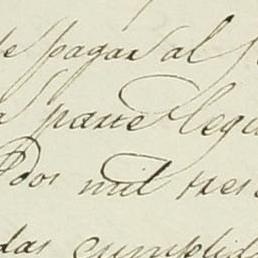 pagar al
parte leg
dos mil tres
das cumplid